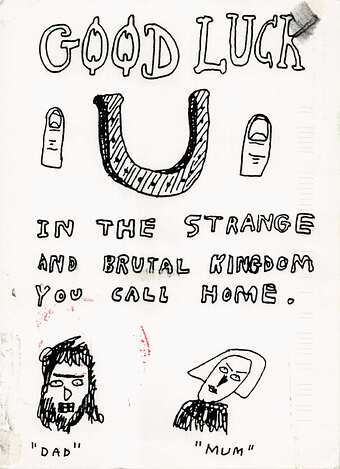 GOOD LUCK
IN THE STRANGE
AND BRUTAL KINGDOM
YOU CALL HOME.
"DAD" "MUM"